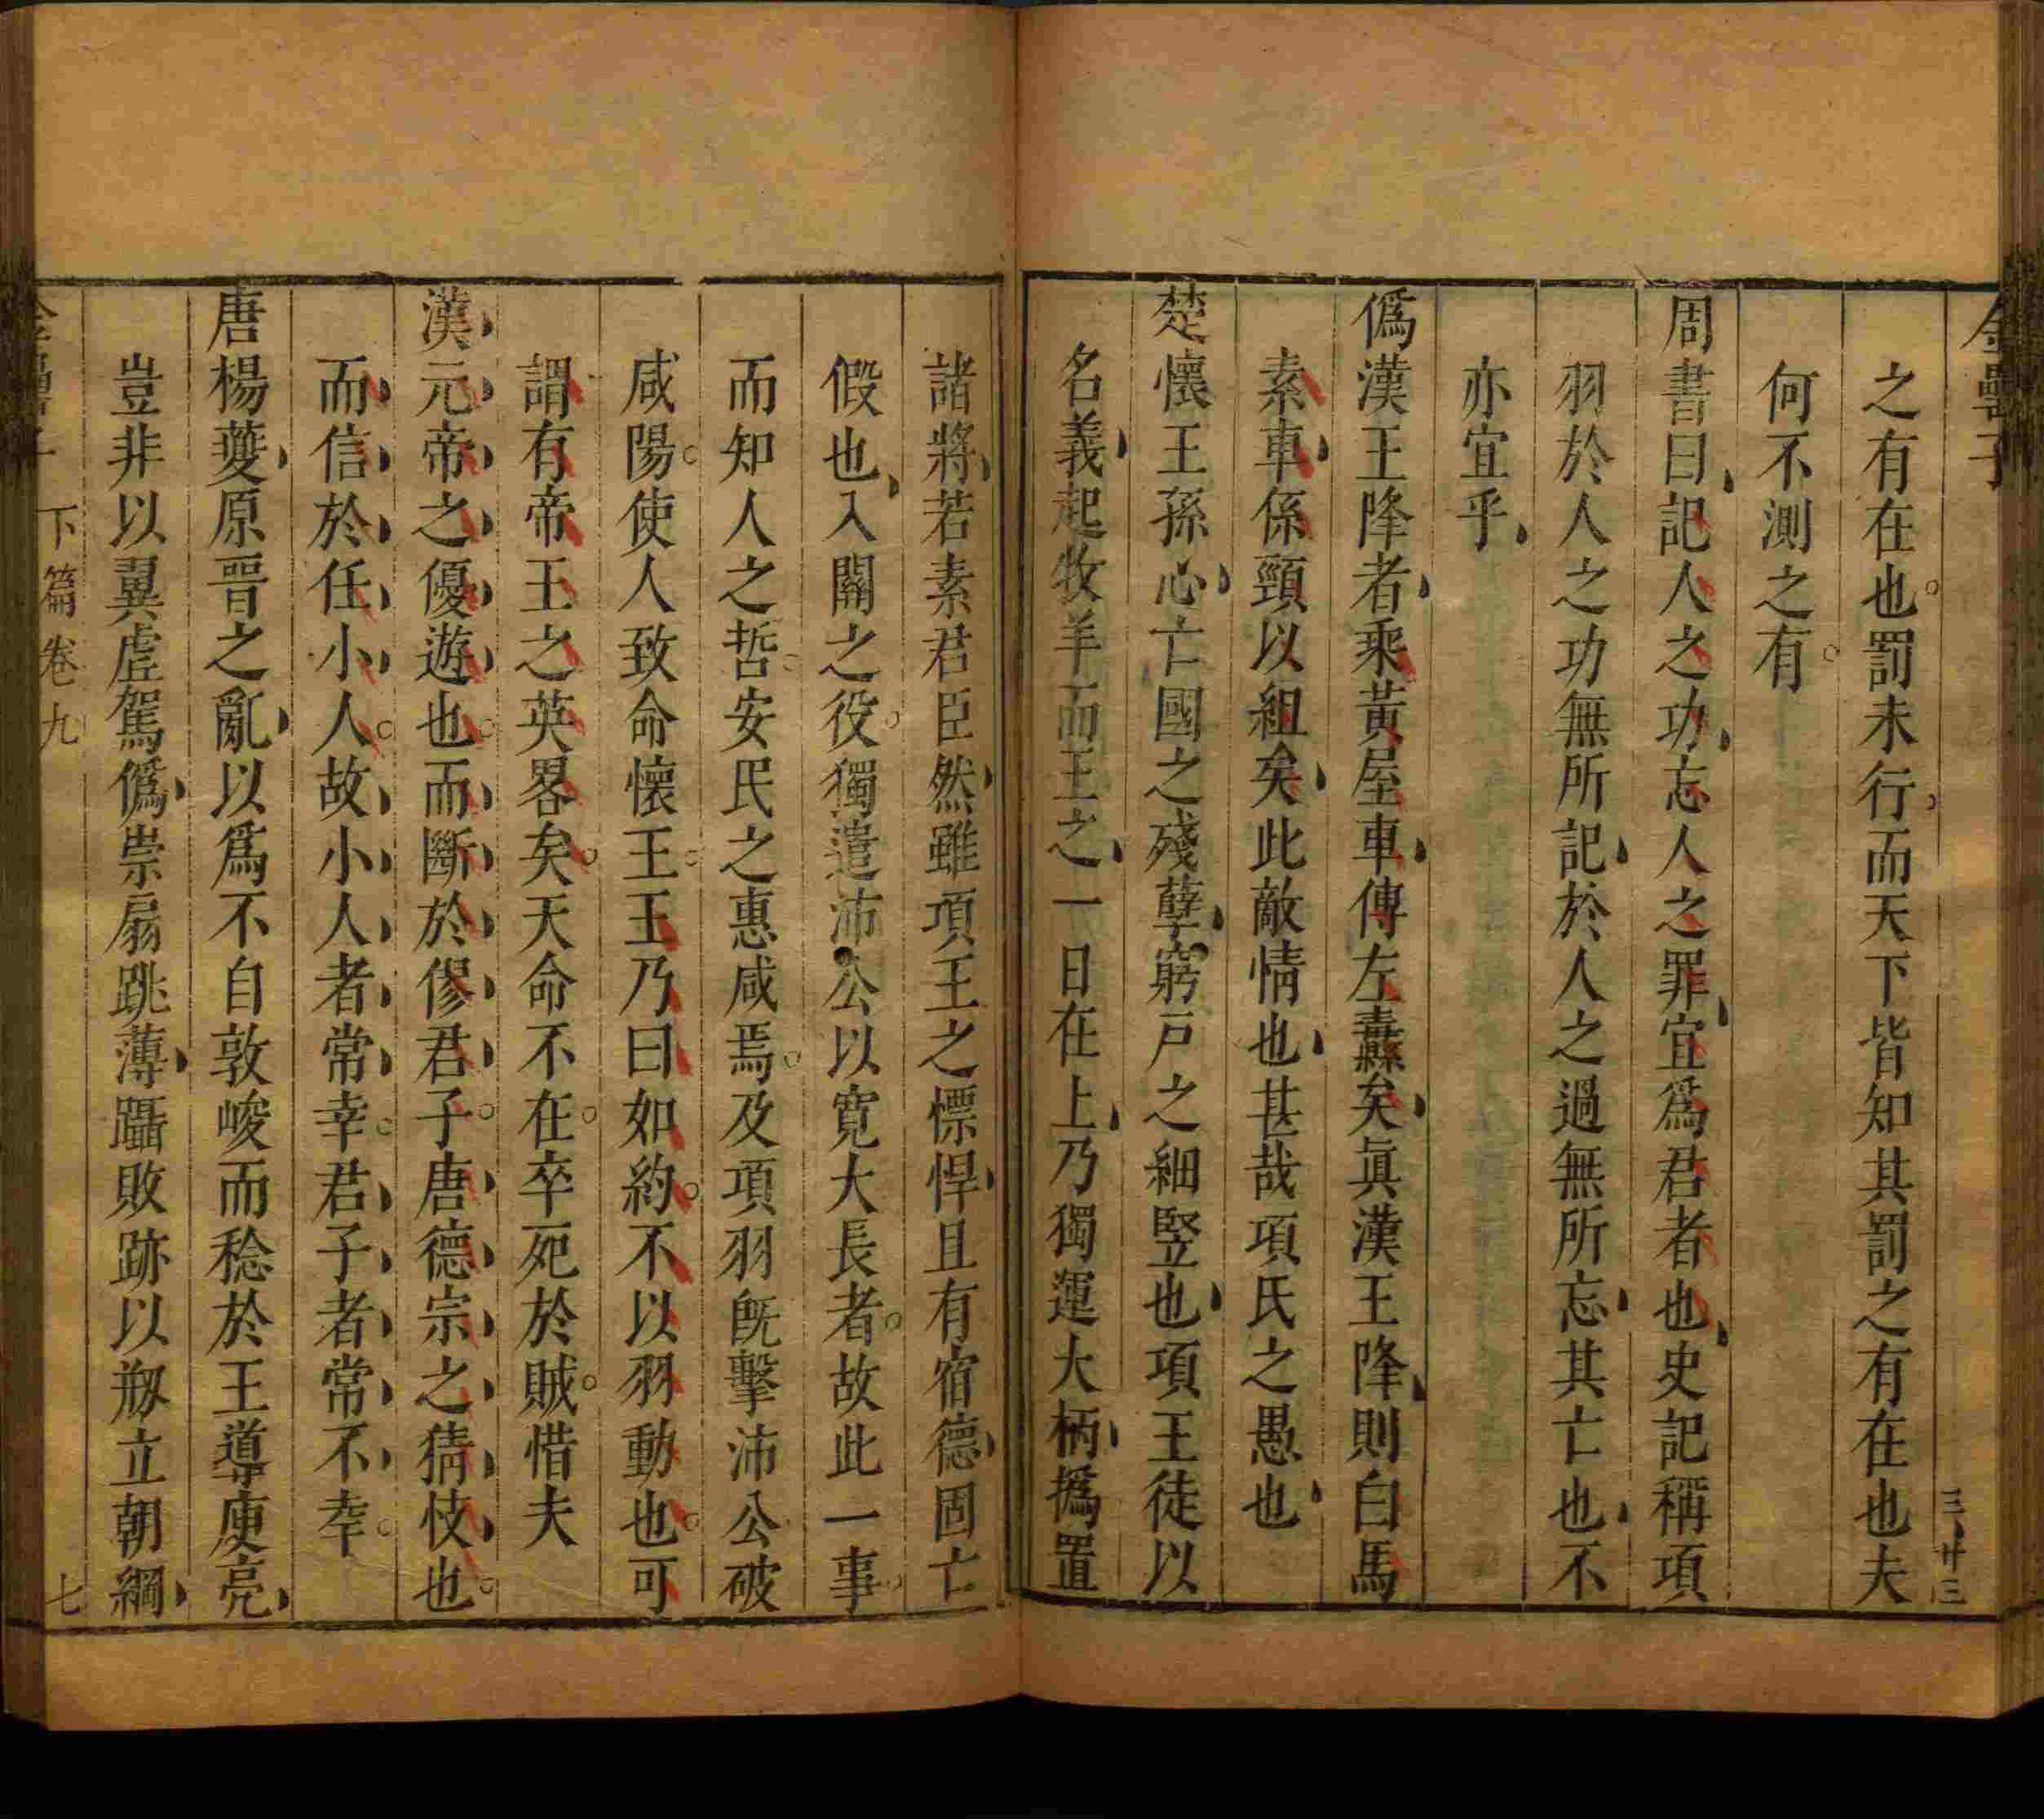 金罍子
三廿三
之有在也罰未行而天下皆知其罰之有在也夫
何不測之有
周書曰記人之功忘人之罪宜爲君者也史記稱項
羽於人之功無所記於人之過無所忘其亡也不
亦宜乎
僞漢王降者乘黃屋車傳左纛矣眞漢王降則白馬
素車係頸以組矣此敵情也甚哉項氏之愚也
楚懷王孫心亡國之殘孽窮戸之細竪也項王徒以
名義起牧羊而王之一日在上乃獨運大柄撝置
諸將若素君臣然雖項王之慓悍且有宿德固亡
假也入關之役獨遣沛公以寛大長者故此一事
而知人之哲安民之惠咸焉及項羽旣擊沛公破
咸陽使人致命懷王王乃曰如約不以羽動也可
謂有帝王之英畧矣天命不在卒死於賊惜夫
漢元帝之優遊也而斷於僇君子唐德宗之猜忮也
而信於任小人故小人者常幸君子者常不幸
唐楊夔原晉之亂以爲不自敦峻而稔於王導庾亮
豈非以翼虛駕僞崇扇跳薄躡敗跡以剏立朝綱
下篇卷九
七